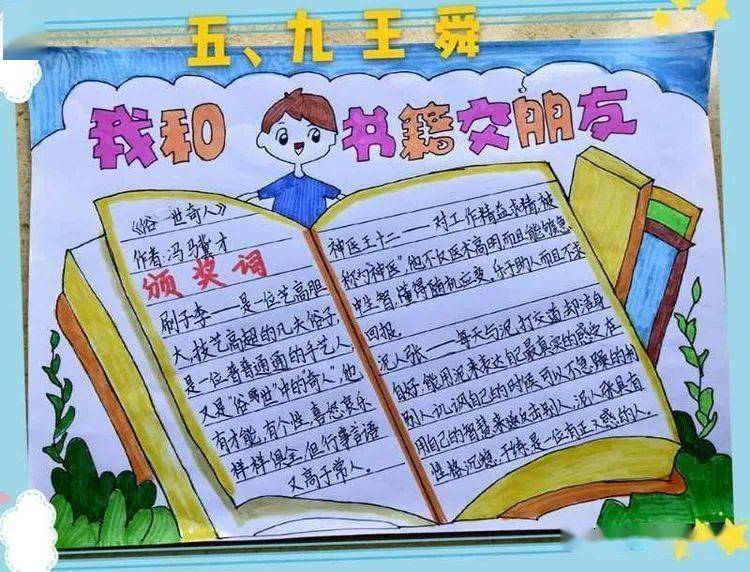 五、九王舜
我和书籍交朋友
《俗世奇人》
作者:冯马冀才
颁奖词
刷子李——是一位艺高胆
大,技艺高超的凡夫俗子,
是一位普普通通的手艺人,
又是“俗世”中的“奇人”,他
有才能,有个性,喜怒哀乐
样样俱全,但行事言语
又高于常人。
神医王十二——对工作精益求精,被
称为“神医”,他不仅医术高明而且能够急
中生智,懂得随机应变。乐于助人而且不求
回报。
泥人张——每天与泥打交道却洁身
自好,能用泥来表达自己最真实的感受,在
别人讥讽自己的时候可以不急躁的利
用自己的智慧来嘲反击别人。泥人张具有
性格沉稳,干练是一位有正义感的人。